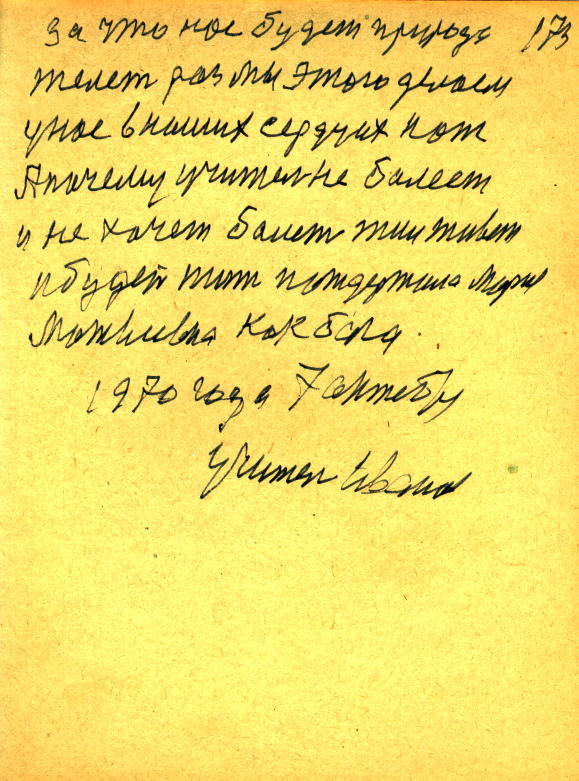 За что нас будет природа 173
желет раз мы этого делаем
у нас в наших сердцах
А почему учител не балеет
и не хочет балет жил живет
и будет жит Мария
Матвиевна как баба.
1970 года 7 октебру
Учител Иванов